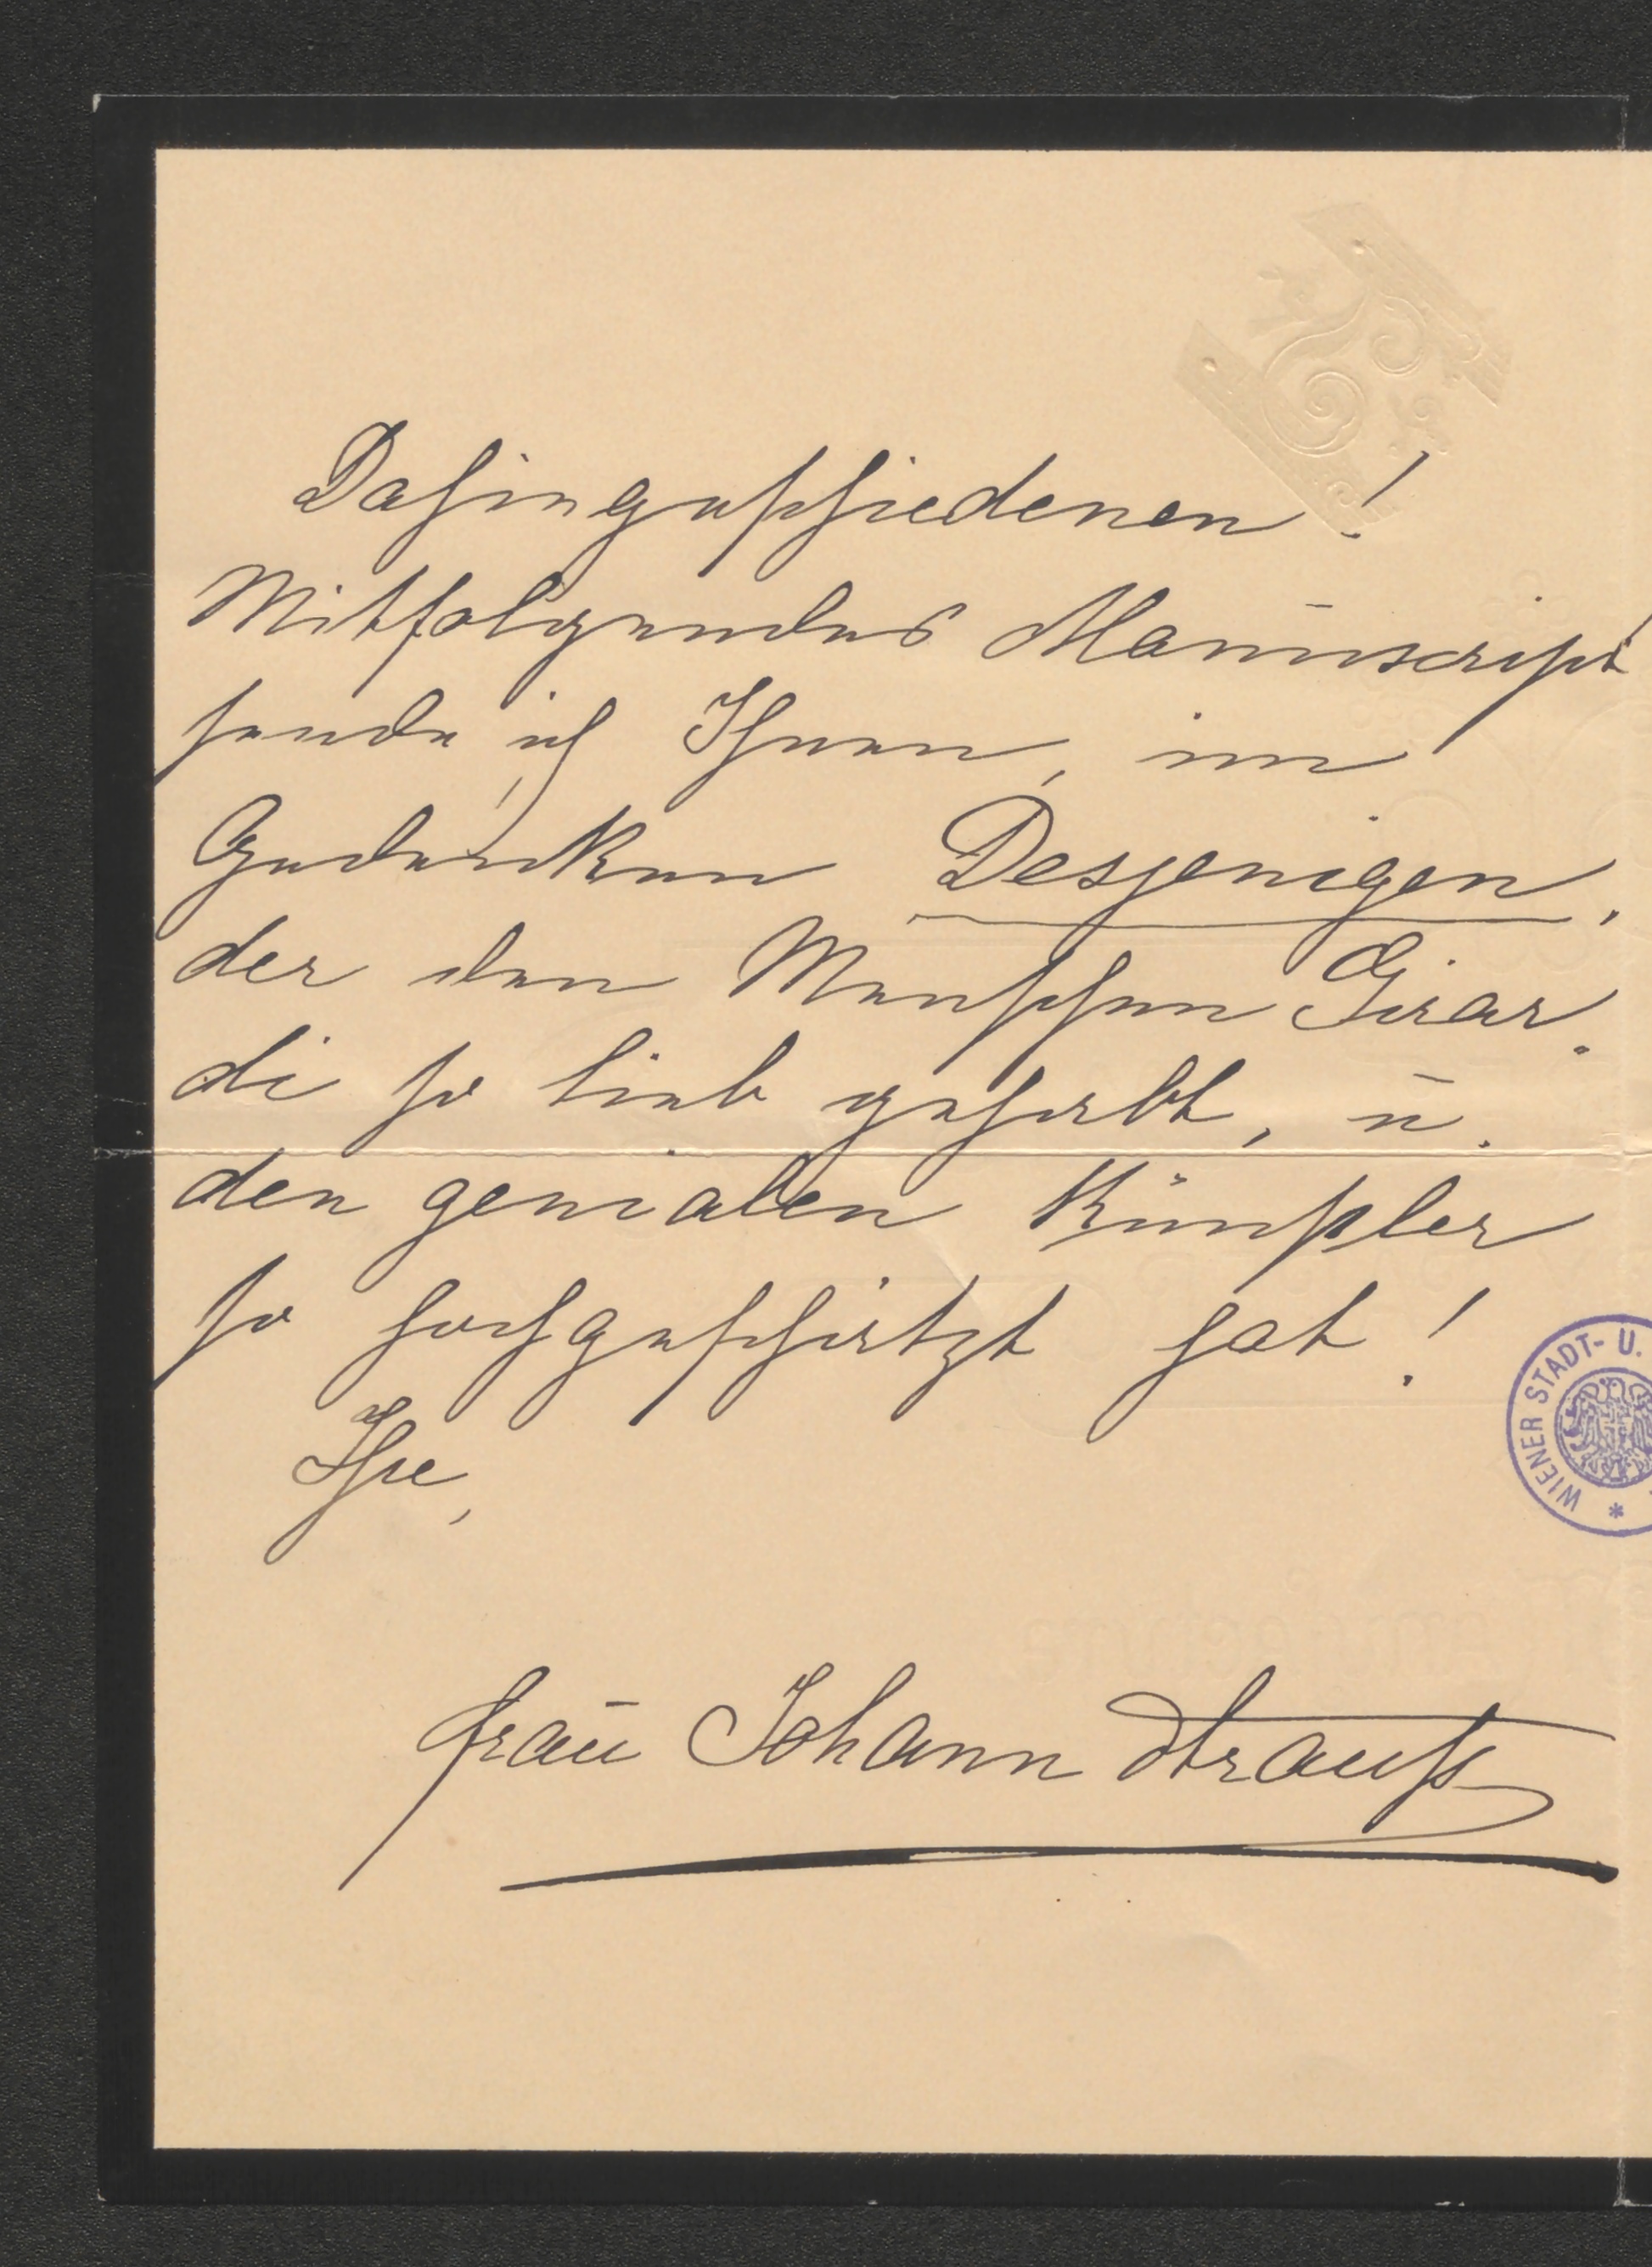 Dahingeschiedenen!
Mitfolgendes Manuscript
sende ich Ihnen, im
Gedenken Desjenigen,
der den Menschen Girar-
di so lieb gehabt, u.
den genialen Künstler
so hochgeschätzt hat!
Ihre,
Frau Johann Strauß
WIENER STADT- U.